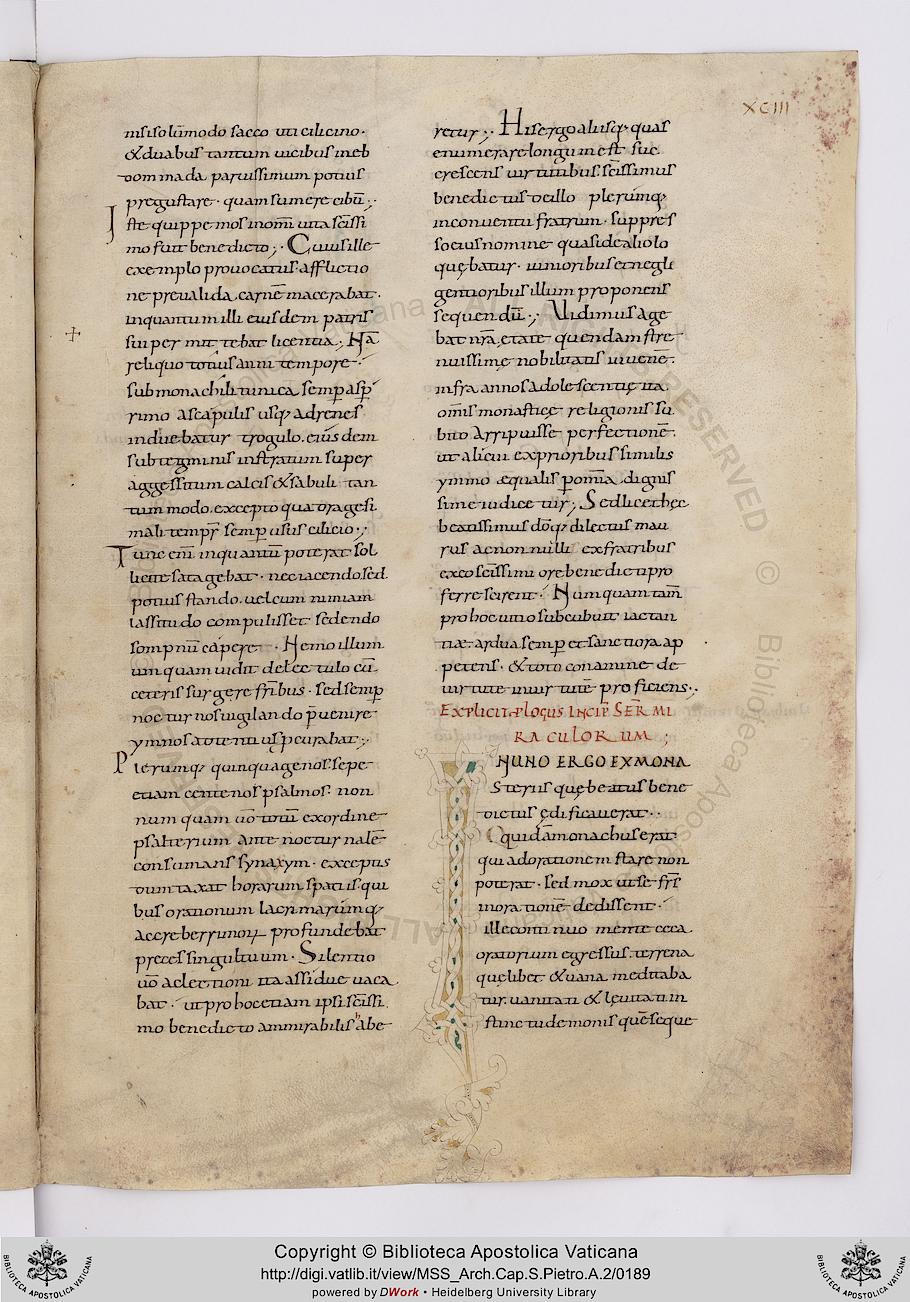 XCIII
nisi solūmodo sacco uti cilicino·
& duabus tantum uicibus in eb
dommada paruissimum potius
pregustare· quam sumere cibū;·
Iste quippe mos inomī uita sc̄issi
mo fuit benedicto;· Cuius ille
exemplo prouocatus· afflictio
ne preualida carnē macerabat·
inquantum illi eiusdem patris
sui permittebat licentia; Nā
reliquo totius anni tempore·
sub monachili tunica semp̄ asp̄
rimo a scapulis usq; ad renes
induebatur trogulo. eiusdem
subtegminis instratum super
aggessitum calcis & sabuli tan
tummodo. excepto quadragesi
mali tempr̄ semp̄ usus cilicio;·
Tunc enī inquantū poterat sol
licite satagebat· nec iacendo sed
potius stando. uel cum nimiam
lassitudo compulisset sedendo
somnū capere· Nemo illum
umquam uidit de lectulo cū
ceteris surgere fr̄ibus· sed semp̄
nocturnos uigilando p̄uenire
ymnos adtentius p̄curabat;·
Plerumq; quinquagenos. sepe
etiam centenos psalmos· non
numquam uō totū ex ordine
psalterium ante nocturnalē
consumans synaxym· exceptis
dumtaxat horarum spatiis. qui
bus orationum lacrimarumq;
ac crebeṛṛimoꝝ profundebat
preces singultuum· Silentio
uō ac lectioni ita assidue uaca
bat· ut pro hoc etiam ipsi sc̄issi
mo benedicto ammirabilis abe
retur;· His ergo aliisq; quas
enumerare longum est suc
crescens uirtutibus· sc̄issimus
benedictus docillo plerumq;
in conuentu fratrum· suppres
so eius nomine quasi de alio lo
quębatur· iunioribus et negli
gentioribus illum proponens
sequendū;· Uidimus age
bat nr̄a ętate quendam stre
nuissimę nobilitatis iuuenē·
infra annos adolescentię ita
om̄is monasticę religionis su
bito arripuisse perfectionē·
ut alicui ex prioribus similis
ymmo ęqualis p omīa dignis
sime iudicetur; Sed licet hęc
beatissimus dōq; dilectus mau
rus ac nonnulli ex fratribus
ex eo sc̄issimi ore benedicti pro
ferre scirent· Numquam tam̄
pro hoc uitio subcubuit iactan
tiæ. ardua semp̄ et sanctiora ap
petens· & toto conamine de
uirtute in uirtutē proficiens;·
EXPLICIT PLOGUS INCIP̄ SER̄ MI
RACULORUM;
NUNO ERGO EX MONA
steriis quę beatus bene
dictus ędificauerat··
Quidā monachus erat
qui ad orationem stare non
poterat· sed mox ut se fr̄s
in orationē dedissent·
ille continuo mente ceca
oratorium egressus. terrena
quęlibet & uana meditaba
tur. uanitati & lęuitati in
stinctu demonis quę seque
Copyright © Biblioteca Apostolica Vaticana
http://digi.vatlib.it/view/MSS_Arch.Cap.S.Pietro.A.2/0189
powered by DWork • Heidelberg University Library